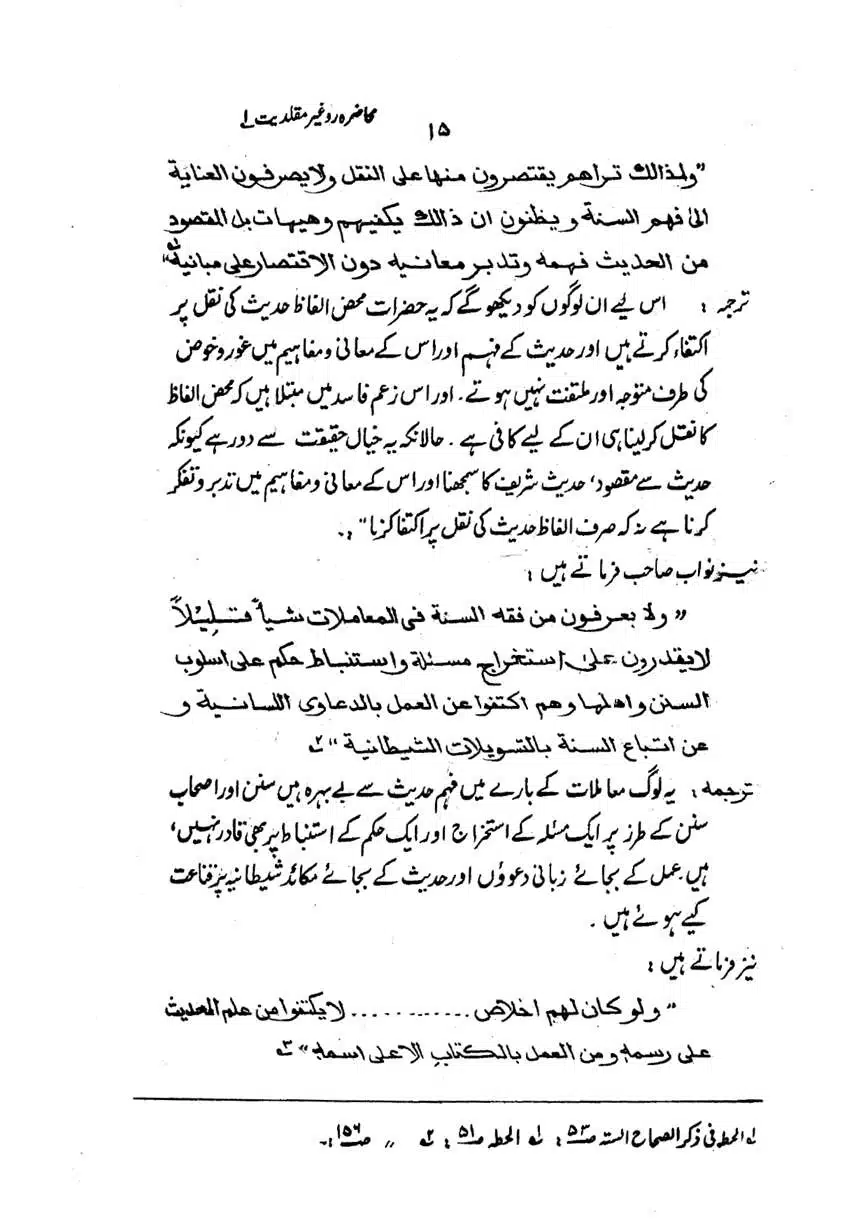 محاضرہ رد غیر مقلدیت ۱
۱۵
”ولذالك تراهم يقتصرون منها على النقل ولا يصرفون العناية
الى فهم السنة و يظنون ان ذالك يكفيهم وهيهات بل المقصود
من الحديث فهمه وتدبر معانيه دون الاقتصار على مبانيه“ ۱ے
ترجمہ : اس لیے ان لوگوں کو دیکھو گے کہ یہ حضرات محض الفاظ حدیث کی نقل پر
اکتفاء کرتے ہیں اور حدیث کے فہم اور اس کے معانی و مفاہیم میں غور و خوض
کی طرف متوجہ اور ملتفت نہیں ہوتے ۔ اور اس زعم فاسد میں مبتلا ہیں کہ محض الفاظ
کا نقل کر لینا ہی ان کے لیے کافی ہے ۔ حالانکہ یہ خیال حقیقت سے دور ہے کیونکہ
حدیث سے مقصود، حدیث شریف کا سمجھنا اور اس کے معانی و مفاہیم میں تدبر و تفکر
کرنا ہے نہ کہ صرف الفاظ حدیث کی نقل پر اکتفا کرنا“ ۔
نیز نواب صاحب فرماتے ہیں :
” ولا يعرفون من فقه السنة فى المعاملات شيأ قليلاً
لا يقدرون على استخراج مسئلة واستنباط حكم على اسلوب
السنن واهلها وهم اكتفوا عن العمل بالدعاوى اللسانية و
عن اتباع السنة بالتسويلات الشيطانية “ ۲ے
ترجمہ : یہ لوگ معاملات کے بارے میں فہم حدیث سے بے بہرہ ہیں سنن اور اصحاب
سنن کے طرز پر ایک مسئلہ کے استخراج اور ایک حکم کے استنباط پر بھی قادر نہیں،
ہیں عمل کے بجائے زبانی دعوؤں اور حدیث کے بجائے مکائد شیطانیہ پر قناعت
کیے ہوئے ہیں ۔
نیز فرماتے ہیں :
” ولو كان لهم اخلاص ............ لا يكتفوا من علم الحديث
على رسمه ومن العمل بالكتاب الا على اسمه “ ۳ے
۱ے الحطہ فی ذکر الصحاح الستہ ص۵۳ : ۱ے الحطہ ص۵۱ : ۲ے ” ص۱۵۶ :۔